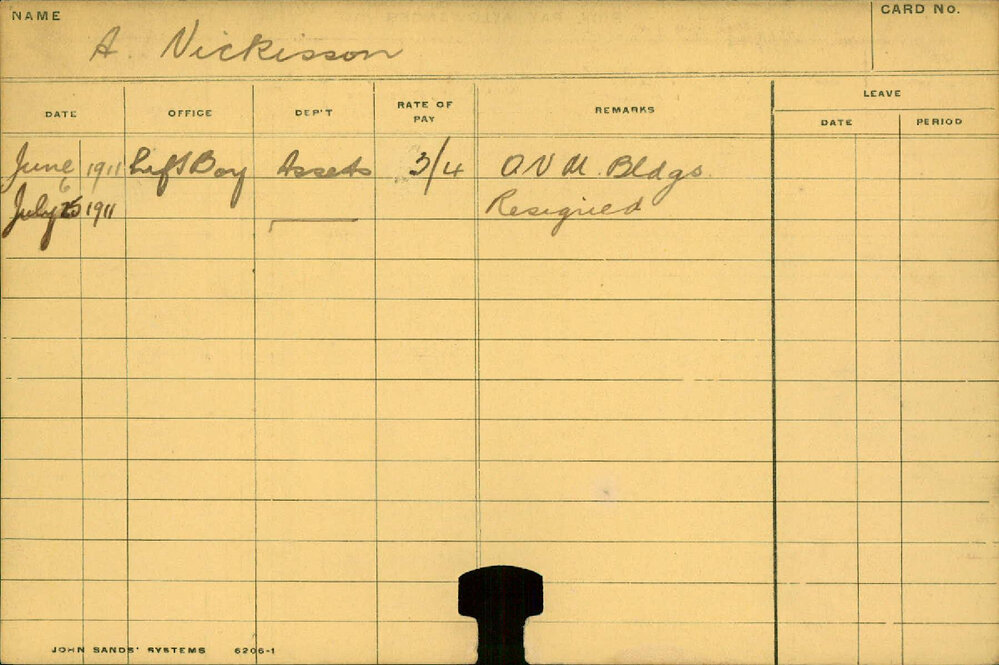 NAME
CARD No.
A. Nickisson
DATE OFFICE DEP'T RATE OF PAY REMARKS LEAVE
DATE PERIOD
June 6 1911 Lift Boy Assets 3/4 Q V M. Bldgs.
July 25 1911 Resigned
JOHN SANDS' SYSTEMS 6206-1